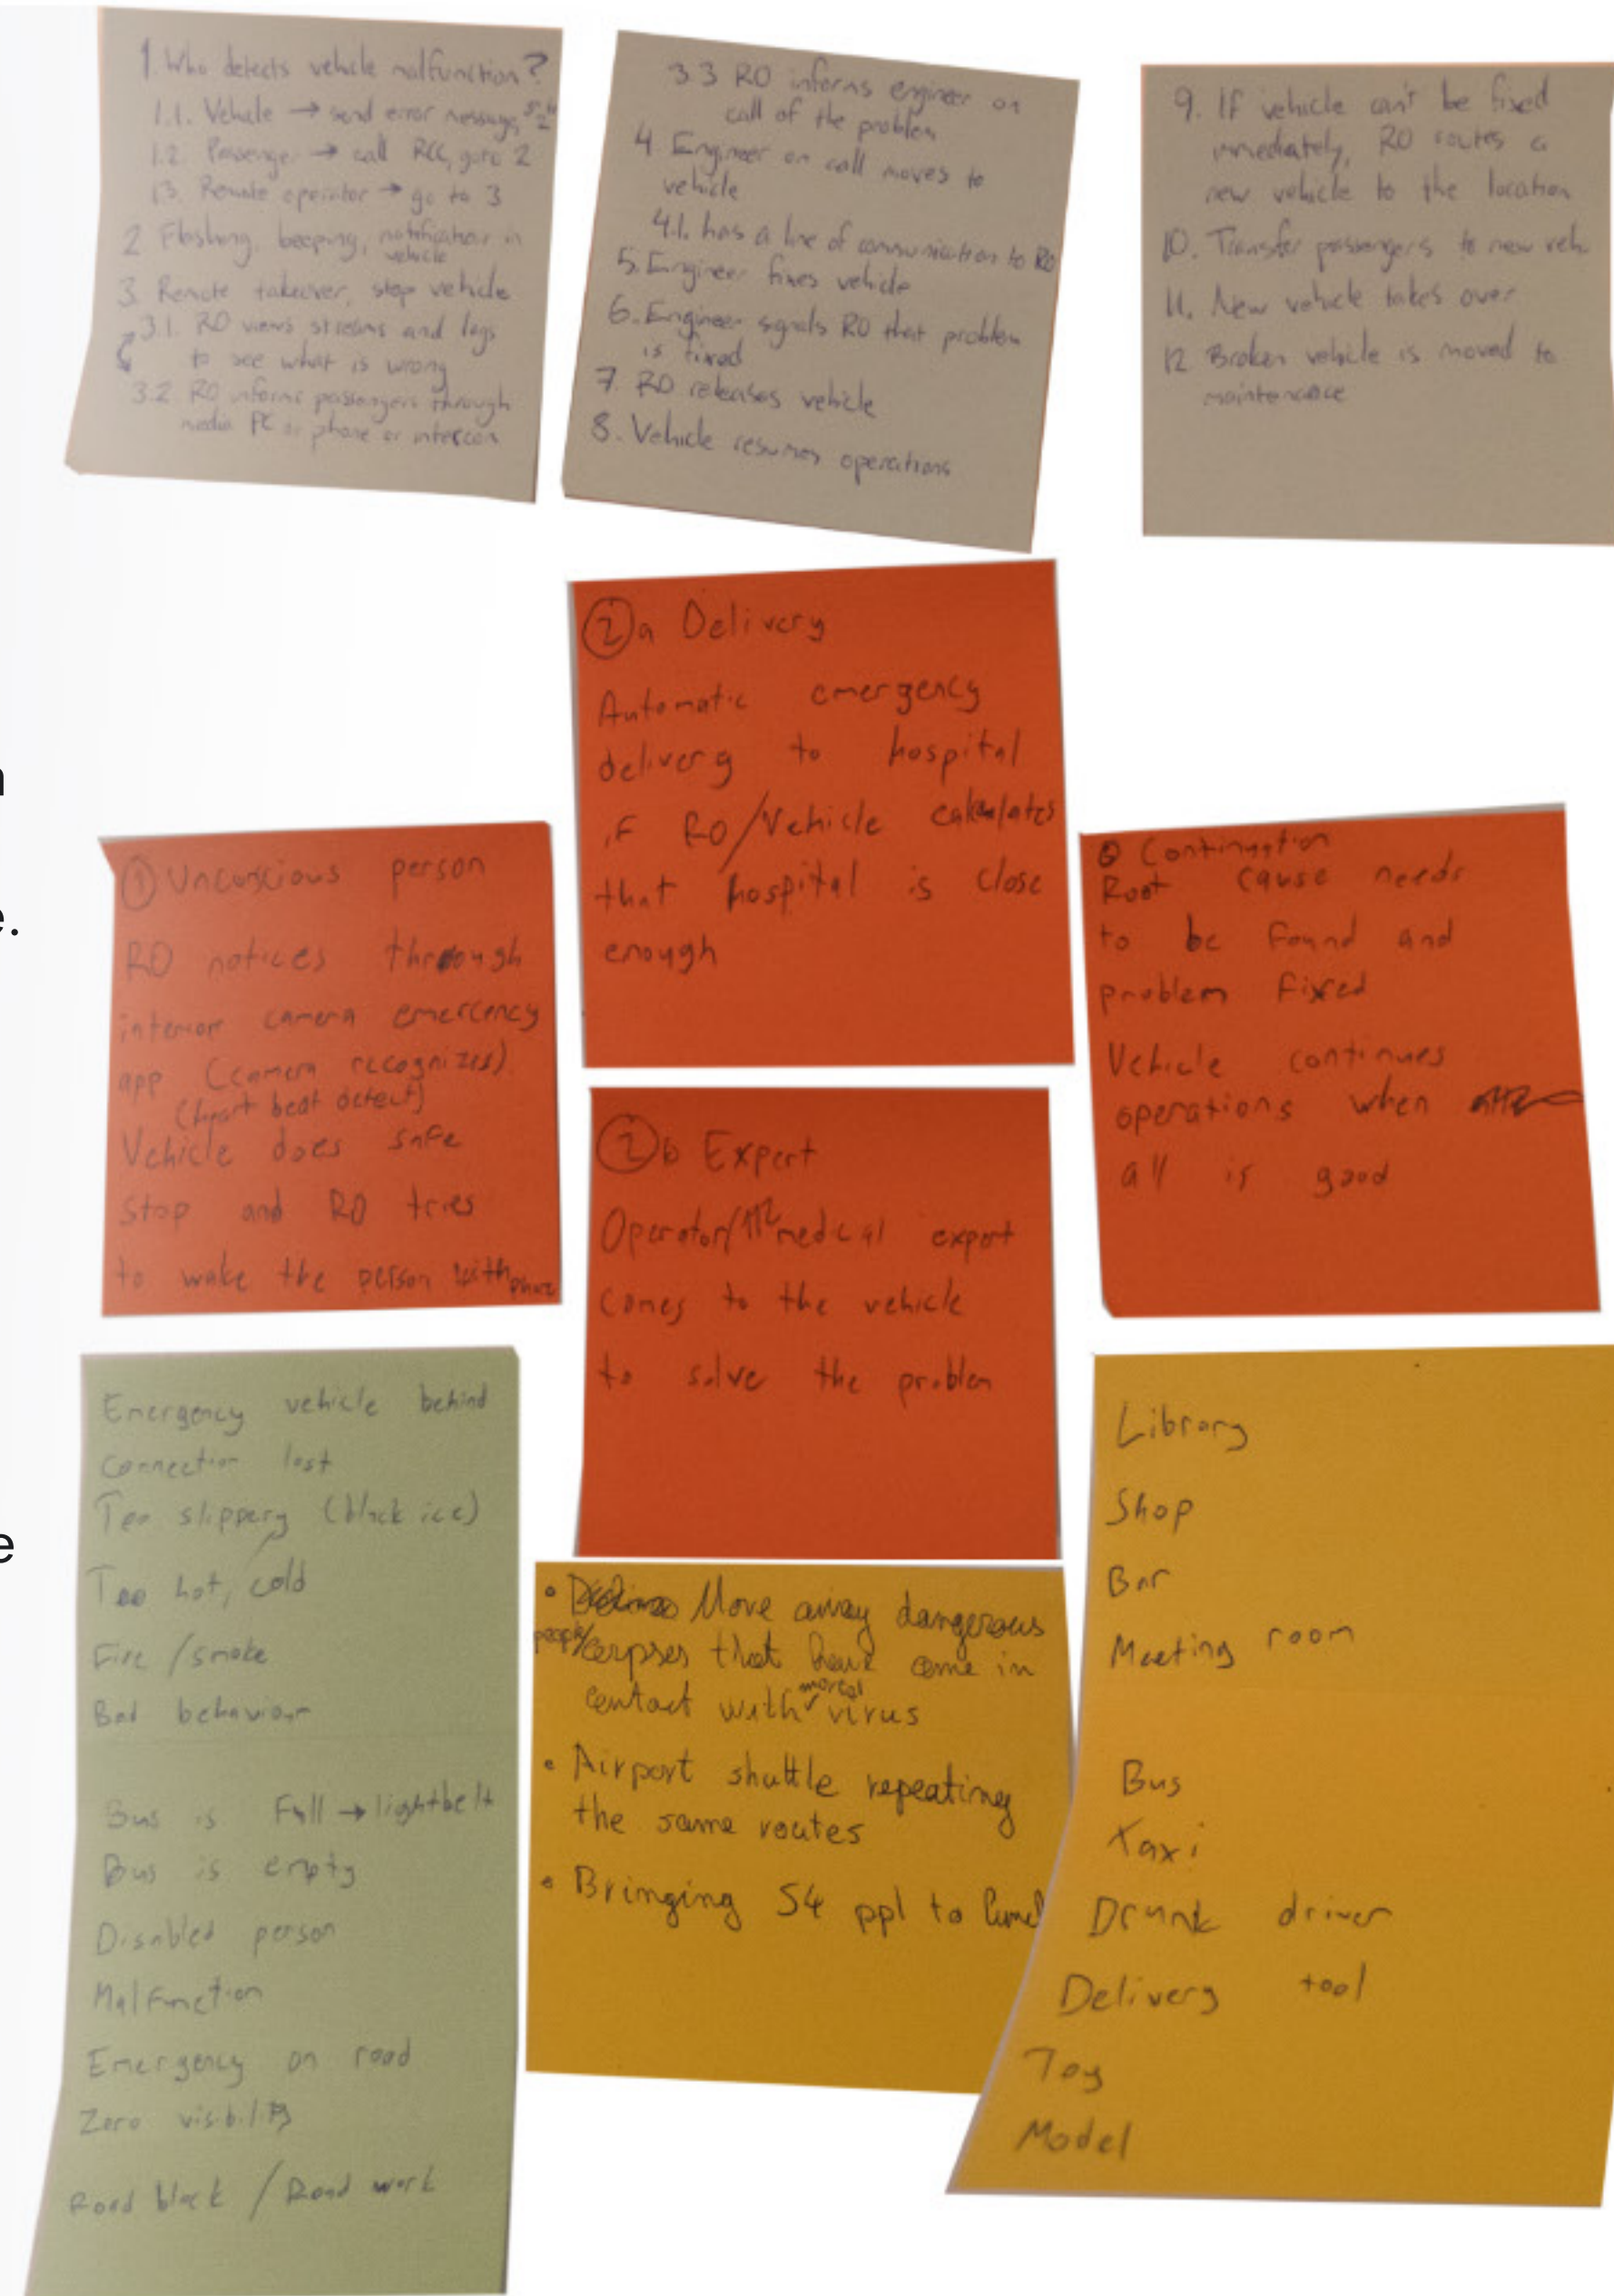 1. Who detects vehicle malfunction?
1.1. Vehicle → send error message,
1.2. Passenger → call RCC, goto 2
1.3. Remote operator → go to 3
2 Flashing, beeping, notification in
vehicle
3. Remote takeover, stop vehicle
3.1. RO views streams and logs
to see what is wrong
3.2. RO informs passengers through
media PC or phone or intercom
3.3 RO informs engineer on
call of the problem
4 Engineer on call moves to
vehicle
4.1. has a line of communication to RO
5. Engineer fixes vehicle
6. Engineer signals RO that problem
is fixed
7. RO releases vehicle
8. Vehicle resumes operations
9. If vehicle can't be fixed
immediately, RO routes a
new vehicle to the location
10. Transfer passengers to new veh.
11. New vehicle takes over
12 Broken vehicle is moved to
maintenance
2a Delivery
Automatic emergency
delivery to hospital
if RO/Vehicle calculates
that hospital is close
enough
1 Unconscious person
RO notices through
interior camera emercency
app (camera recognizes)
(heart beat detect)
Vehicle does safe
stop and RO tries
to wake the person with phone
2b Expert
Operator/ medical expert
comes to the vehicle
to solve the problem
Continuation
Root cause needs
to be found and
problem fixed
Vehicle continues
operations when
all is good
Emergency vehicle behind
Connection lost
Too slippery (black ice)
Too hot, cold
Fire / smoke
Bad behaviour
Bus is Full → lightbelt
Bus is empty
Disabled person
Malfunction
Emergency on road
Zero visibility
Road block / Road work
• Move away dangerous
people/corpses that have come in
contact with mortal virus
• Airport shuttle repeating
the same routes
• Bringing S4 ppl to lunch
Library
Shop
Bar
Meeting room
Bus
Taxi
Drunk driver
Delivery tool
Toy
Model
e.
e